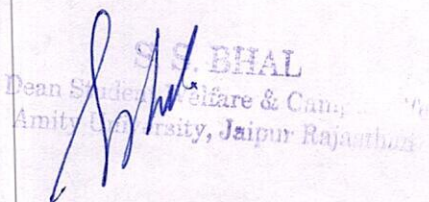 S. S. BHAL
Dean Student Welfare &
Amity University, Jaipur Rajasthan